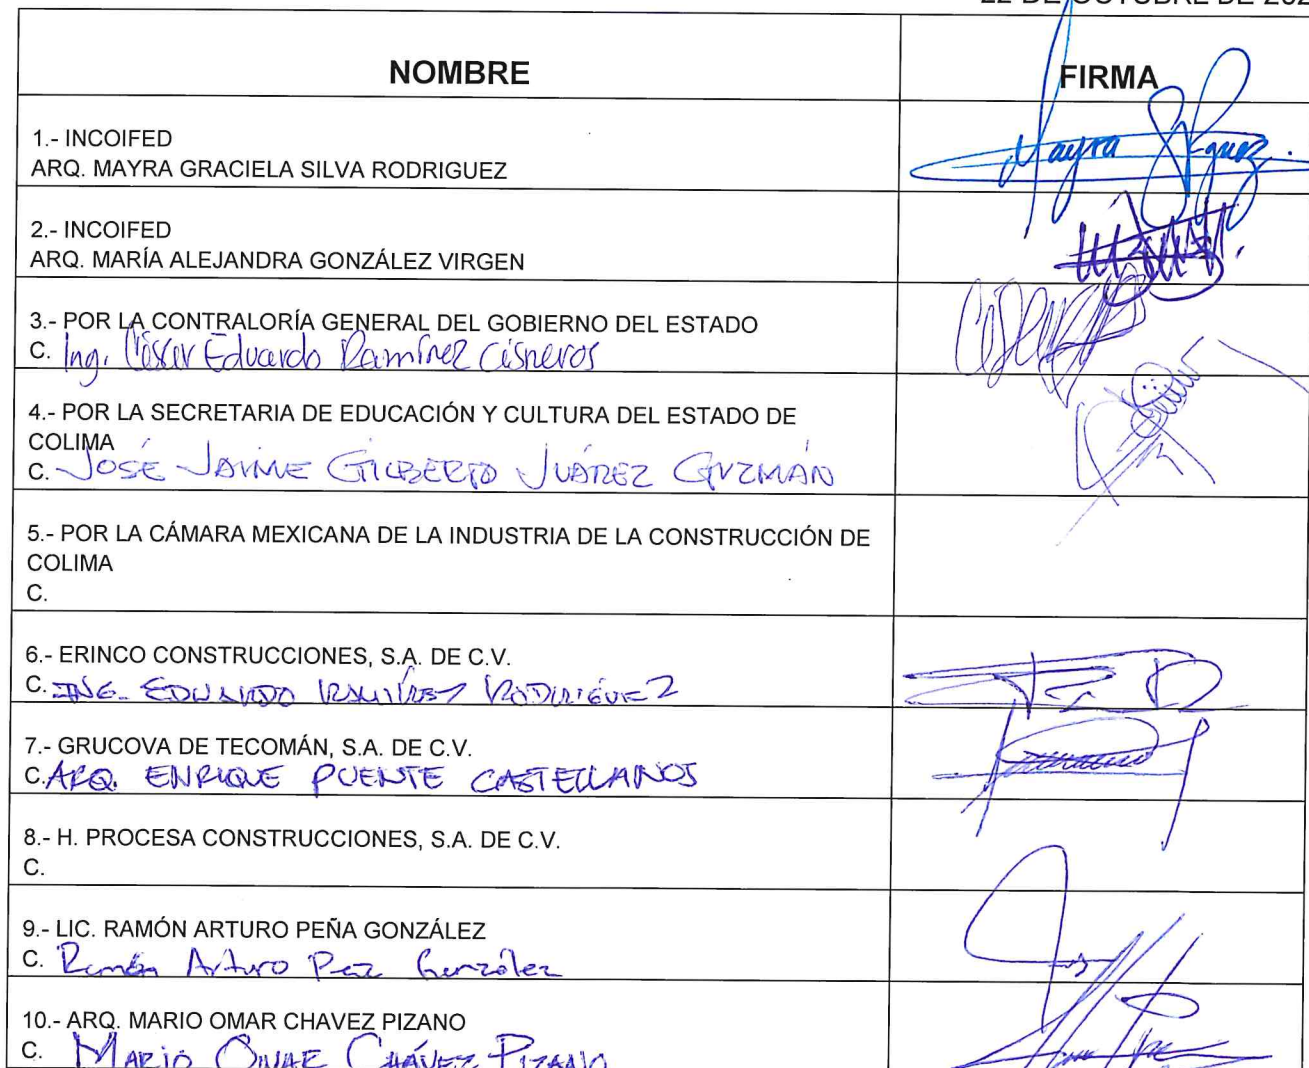 22 DE OCTUBRE DE 202
NOMBRE
FIRMA
1.- INCOIFED
ARQ. MAYRA GRACIELA SILVA RODRIGUEZ
Mayra
2.- INCOIFED
ARQ. MARÍA ALEJANDRA GONZÁLEZ VIRGEN
3.- POR LA CONTRALORÍA GENERAL DEL GOBIERNO DEL ESTADO
C. Ing. Eduardo Ramírez Cisneros
4.- POR LA SECRETARIA DE EDUCACIÓN Y CULTURA DEL ESTADO DE
COLIMA
C. JOSÉ JAIME GILBERTO JUÁREZ GUZMÁN
5.- POR LA CÁMARA MEXICANA DE LA INDUSTRIA DE LA CONSTRUCCIÓN DE
COLIMA
C.
6.- ERINCO CONSTRUCCIONES, S.A. DE C.V.
C. ING. EDUARDO RAMÍREZ RODRIGUEZ
7.- GRUCOVA DE TECOMÁN, S.A. DE C.V.
C. ARQ. ENRIQUE PUENTE CASTELLANOS
8.- H. PROCESA CONSTRUCCIONES, S.A. DE C.V.
C.
9.- LIC. RAMÓN ARTURO PEÑA GONZÁLEZ
C. Ramón Arturo González
10.- ARQ. MARIO OMAR CHAVEZ PIZANO
C. MARIO OMAR CHÁVEZ PIZANO